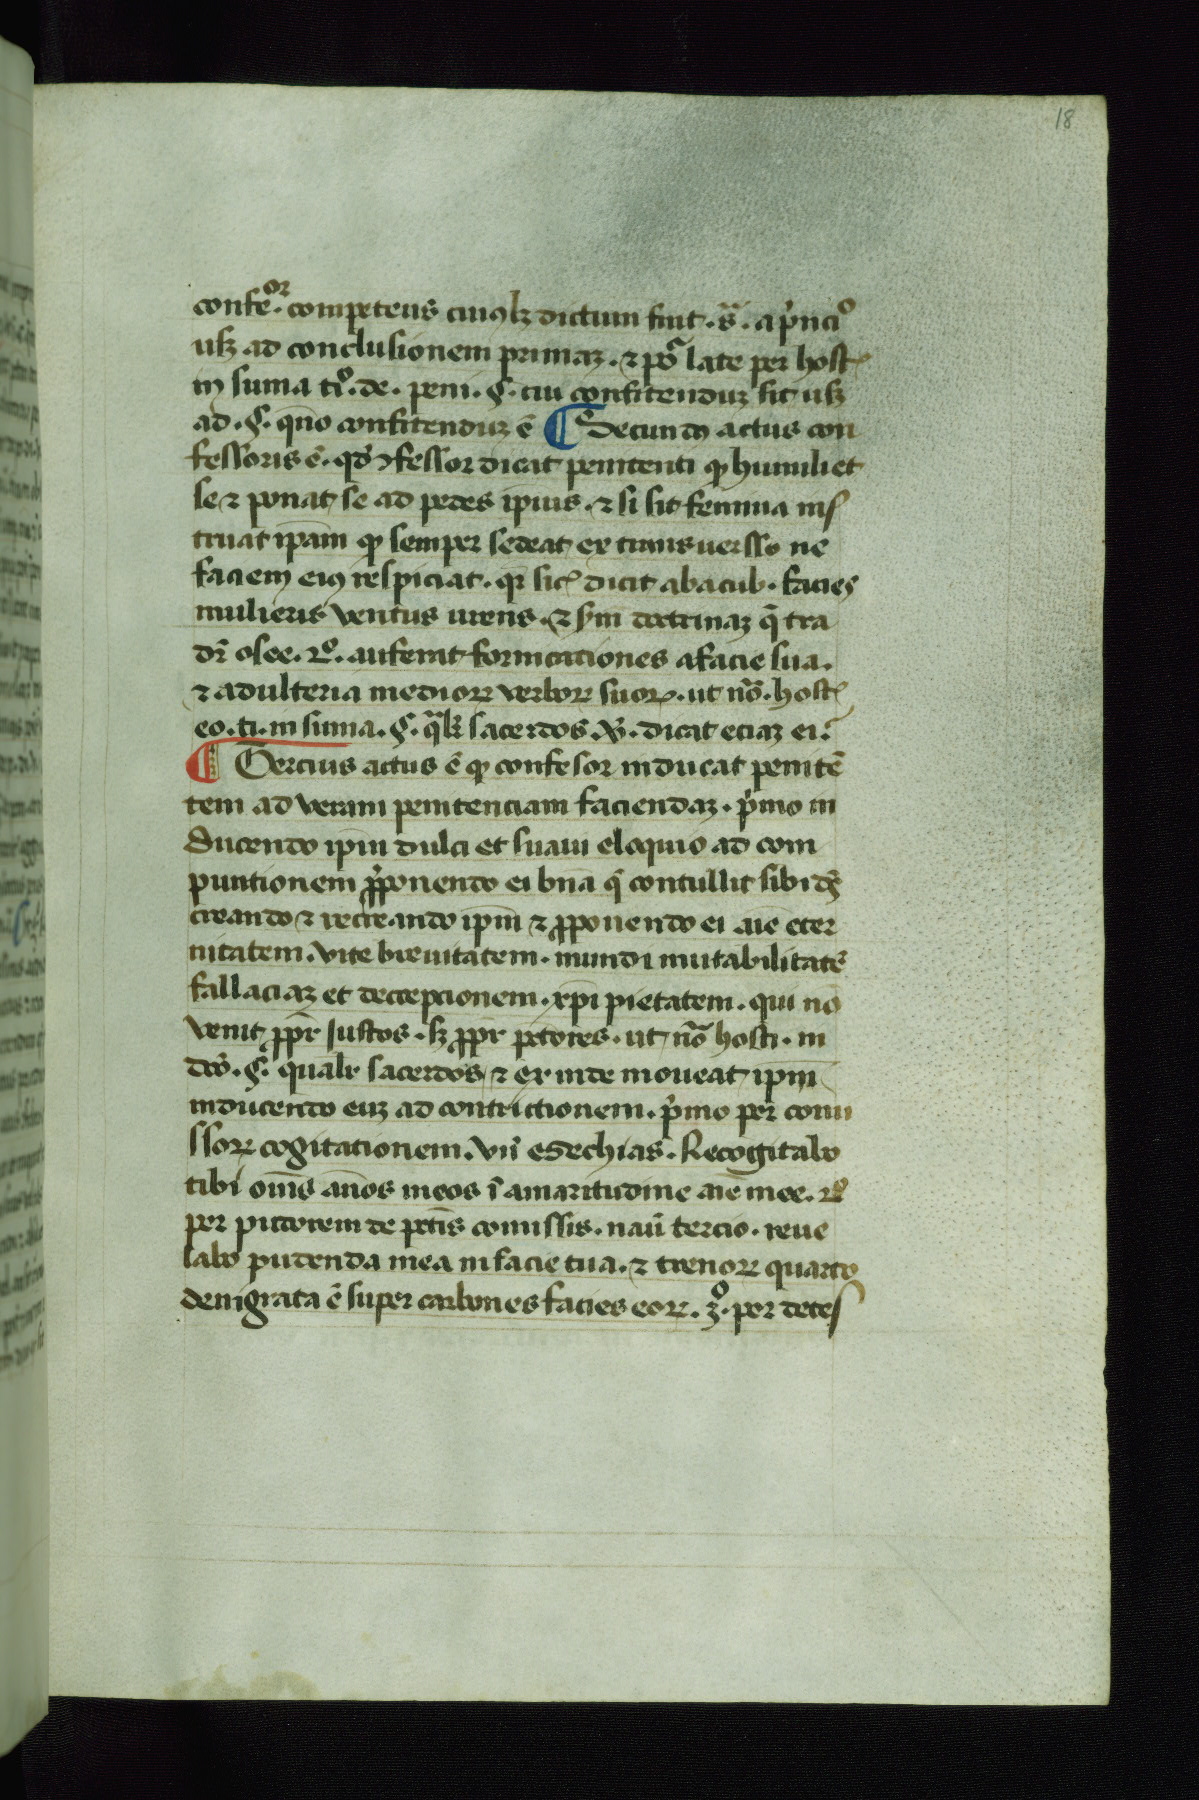 18
confeor. competens cuiuslꝫ dictum fuit. sͣ. a pͥncio
usqꝫ ad conclusionem primaꝫ. ⁊ poͣ late per host
in suma tiͦ. de. peni. §. cui confitenduꝫ sit usqꝫ
ad. §. qn̄o confitenduꝫ ē ¶ Secundꝰ actus con
fessoris ē. qd̓ ꝯfessor dicat penitenti ꝙ humiliet
se ⁊ ponat se ad pedes ip̄ius. ⁊ si sit femina ins
truat ip̄am ꝙ semper sedeat ex transuersso ne
faciem eiꝰ respiciat. qꝛ sic̄ dicit abacub. facies
mulieris ventus urens. ⁊ s̄m doctrinaꝫ q̄ tra
dr̄ osee. 2ͦ. auferat fornicationes a facie sua.
⁊ adulteria medioꝝ verboꝝ suoꝝ. ut nōͣ. host
eo. ti. in suma. §. qͣlꝫ sacerdos. ꝟ. dicat eciaꝫ ei.
¶ Tercius actus ē ꝙ confesor inducat penitē
tem ad veram penitenciam faciendaꝫ. pͥmo in
ducendo ip̄m dulci et suaui eloquio ad com
puntionem ꝓponendo ei bn̄a q̄ contullit sibi dꝰ
creando ⁊ recreando ip̄m ⁊ ꝓponendo ei aīe eter
nitatem. vite breuitatem. mundi mutabilitatē
fallaciaꝫ et decepcionem. xp̄i pietatem. qui nō
venit ꝓpr̄ iustos. sꝫ ꝓpr̄ pctores. ut nōͣ hosti. in
dcō. §. qualr sacerdos ⁊ ex inde moueat ip̄m
inducendo euꝫ ad contrictionem. pͥmo per comi
ssoꝝ cogitationem. vn̄ esechias. Recogitabo
tibi om̄s an̄os meos ī amaritudine aīe mee. 2ͦ
per pudorem de pctīs comissis. naū tercio. reue
labo pudenda mea in facie tua. ⁊ trenoꝝ quarto
denigrata ē super carbones facies eoꝝ. 3ͦ. per detes